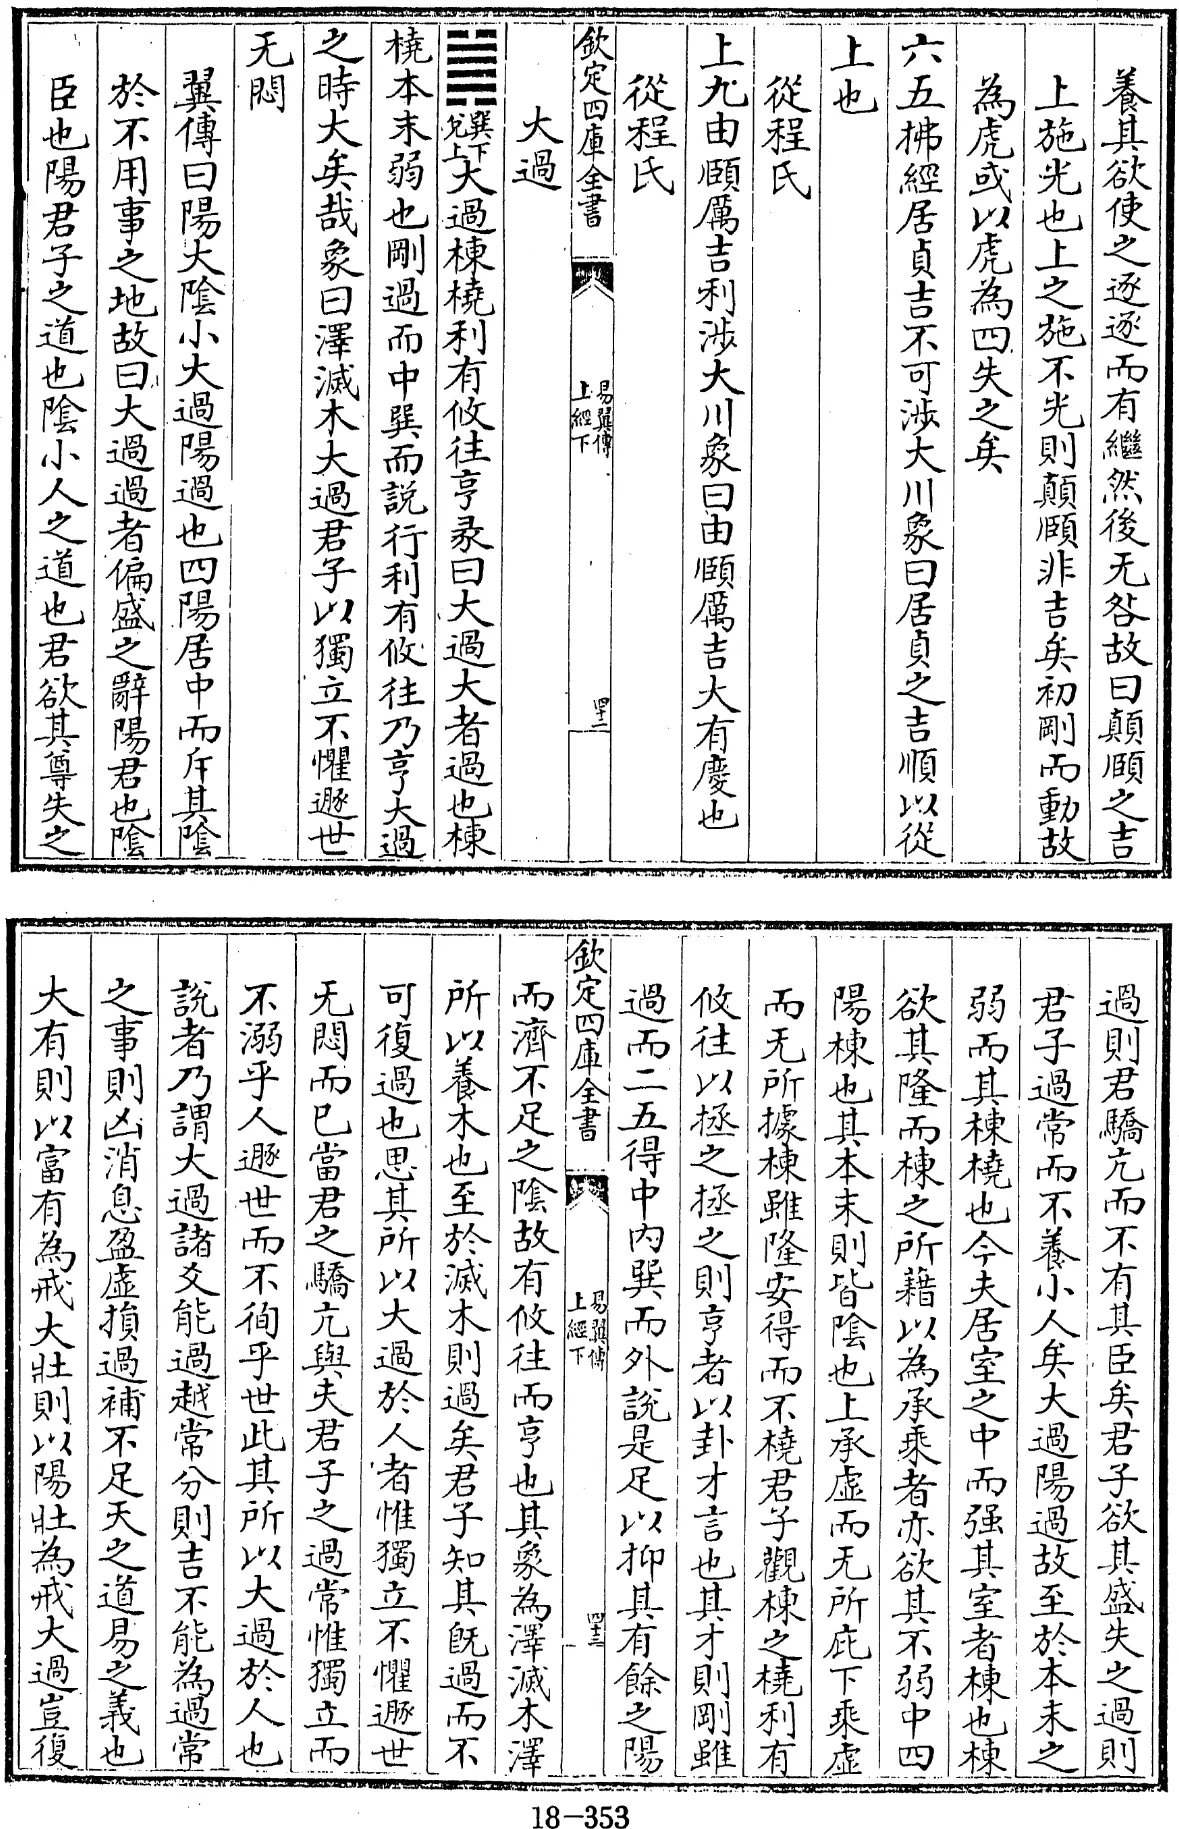 養其欲使之逐逐而有繼然後无咎故曰顛頤之吉
上施光也上之施不光則顛頤非吉矣初剛而動故
為虎或以虎為四失之矣
六五拂經居貞吉不可涉大川象曰居貞之吉順以從
上也
從程氏
上九由頤厲吉利涉大川象曰由頤厲吉大有慶也
從程氏
欽定四庫全書
易翼傳
上經下
四十二
大過
䷛
巽下
兌上
大過棟橈利有攸往亨彖曰大過大者過也棟
橈本末弱也剛過而中巽而説行利有攸往乃亨大過
之時大矣哉象曰澤滅木大過君子以獨立不懼遯世
无悶
翼傳曰陽大陰小大過陽過也四陽居中而斥其陰
於不用事之地故曰大過過者偏盛之辭陽君也陰
臣也陽君子之道也陰小人之道也君欲其尊失之
過則君驕亢而不有其臣矣君子欲其盛失之過則
君子過常而不養小人矣大過陽過故至於本末之
弱而其棟橈也今夫居室之中而强其室者棟也棟
欲其隆而棟之所藉以為承乘者亦欲其不弱中四
陽棟也其本末則皆陰也上承虛而无所庇下乘虛
而无所據棟雖隆安得而不橈君子觀棟之橈利有
攸往以拯之拯之則亨者以卦才言也其才則剛雖
過而二五得中内巽而外説是足以抑其有餘之陽
欽定四庫全書
易翼傳
上經下
四十三
而濟不足之陰故有攸往而亨也其象為澤滅木澤
所以養木也至於滅木則過矣君子知其既過而不
可復過也思其所以大過於人者惟獨立不懼遯世
无悶而已當君之驕亢與夫君子之過常惟獨立而
不溺乎人遯世而不徇乎世此其所以大過於人也
説者乃謂大過諸爻能過越常分則吉不能為過常
之事則凶消息盈虛損過補不足天之道易之義也
大有則以富有為戒大壯則以陽壯為戒大過豈復
18-353